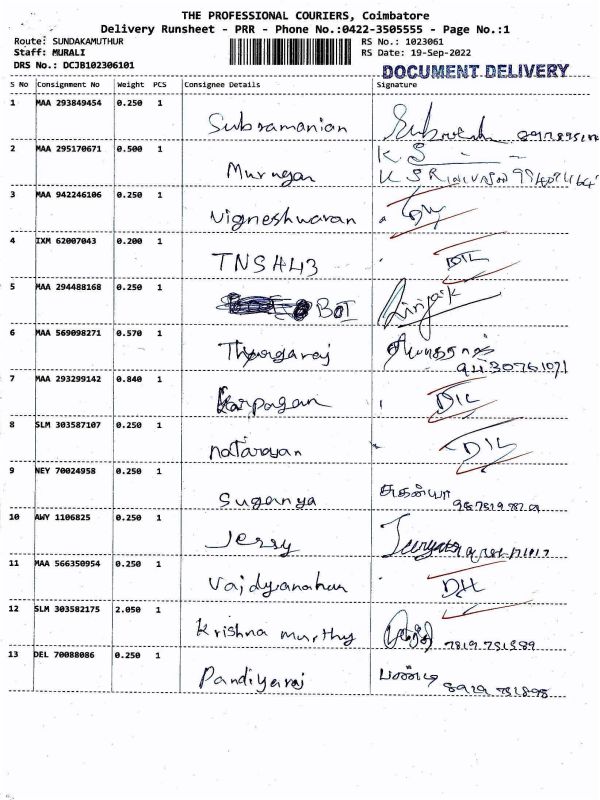 THE PROFESSIONAL COURIERS, Coimbatore
Delivery Runsheet - PRR - Phone No.:0422-3505555 - Page No.:1
Route: SUNDAKAMUTHUR RS No.: 1023061
Staff: MURALI RS Date: 19-Sep-2022
DRS No.: DCJB102306101 DOCUMENT DELIVERY
S No Consignment No Weight PCS Consignee Details Signature
1 MAA 293849454 0.250 1 Subramanian
2 MAA 295170671 0.500 1 Murugan K S
3 MAA 942246106 0.250 1 Vigneshwaran
4 IXM 62007043 0.200 1 TNSH43 DIL
5 MAA 294488168 0.250 1 BOI
6 MAA 569098271 0.570 1 Thyagaraj
9430761071
7 MAA 293299142 0.840 1 Karpagan DIL
8 SLM 303587107 0.250 1 natarayan DIL
9 NEY 70024958 0.250 1 Suganya சுகன்யா
10 AWY 1106825 0.250 1 Jerry
11 MAA 566350954 0.250 1 Vaidyanahan DH
12 SLM 303582175 2.050 1 Krishna murthy 7819 751589
13 DEL 70088086 0.250 1 Pandiyaraj பாண்டி
8929 781898